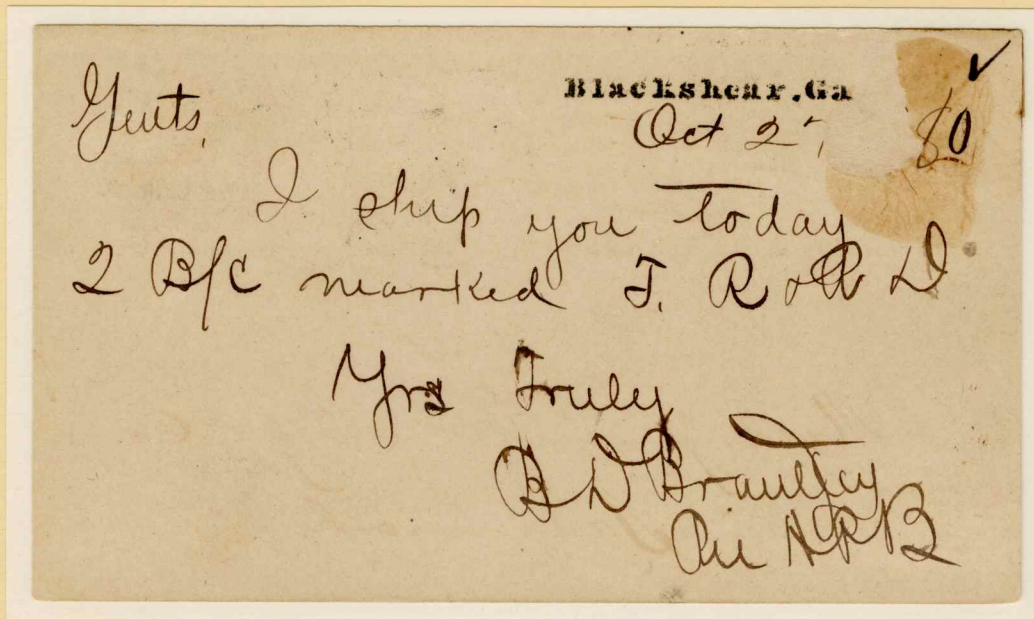 Blackshear, Ga
Gents,
Oct 2
I ship you today
2 B/C marked T. R & R D
Yrs Truly
B D Brantley
Per A P B